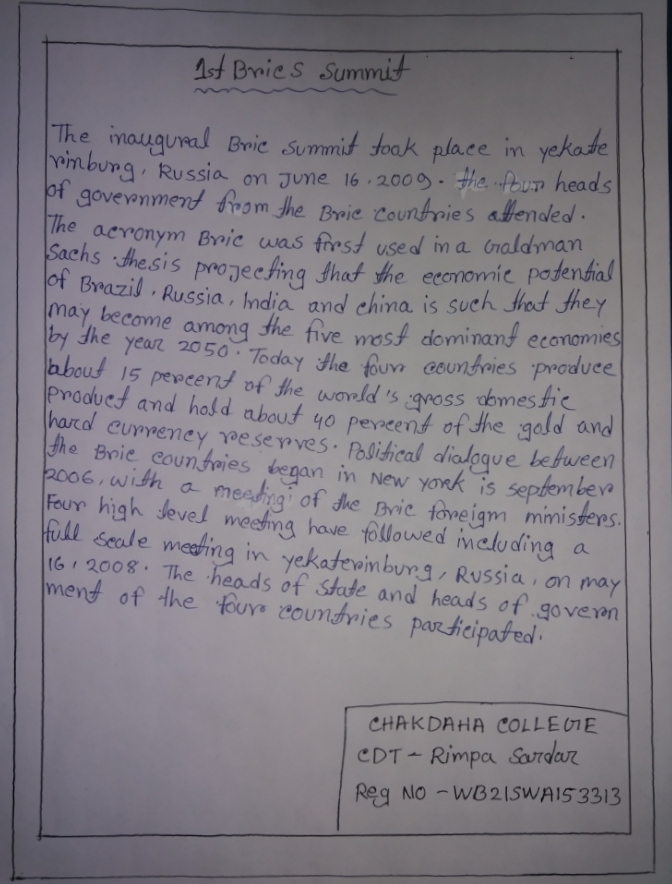 1st Brics Summit
The inaugural Bric summit took place in yekate
rinburg, Russia on June 16, 2009. the four heads
of government from the Bric countries attended.
The acronym Bric was first used in a Goldman
Sachs thesis projecting that the economic potential
of Brazil, Russia, India and china is such that they
may become among the five most dominant economies
by the year 2050. Today the four countries produce
about 15 percent of the world's gross domestic
product and hold about 40 percent of the gold and
hard currency reserves. Political dialogue between
the Bric countries began in New york is september
2006, with a meeting of the Bric foreigm ministers.
Four high level meeting have followed including a
full scale meeting in yekaterinburg, Russia, on may
16, 2008. The heads of state and heads of govern
ment of the four countries participated.
CHAKDAHA COLLEGE
CDT - Rimpa Sardar
Reg NO - WB21SWA153313